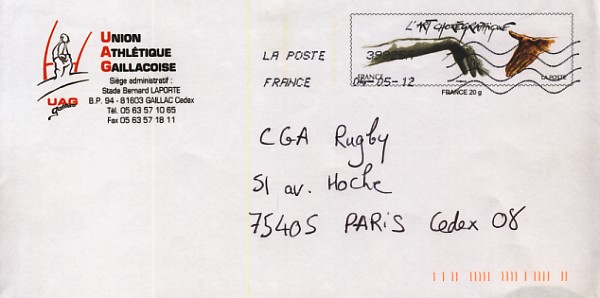 UNION
ATHLÉTIQUE
GAILLACOISE
Siège administratif :
Stade Bernard LAPORTE
B.P. 94 - 81603 GAILLAC Cedex
Tél. 05 63 57 10 65
Fax 05 63 57 18 11
UAG
LA POSTE
FRANCE 04-05-12
L'ART CHORÉGRAPHIQUE
FRANCE LA POSTE
FRANCE 20 g
CGA Rugby
51 av. Hoche
75405 PARIS Cedex 08